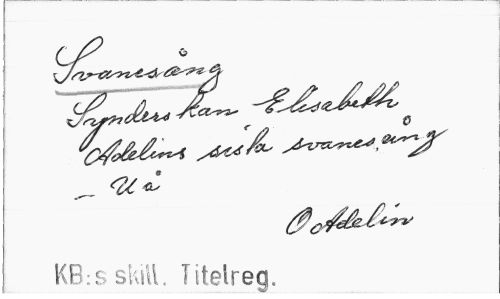 Svanesång
Synderskan Elisabeth
Adelins sista svanesång
- U å
O Adelin
KB:s skill. Titelreg.